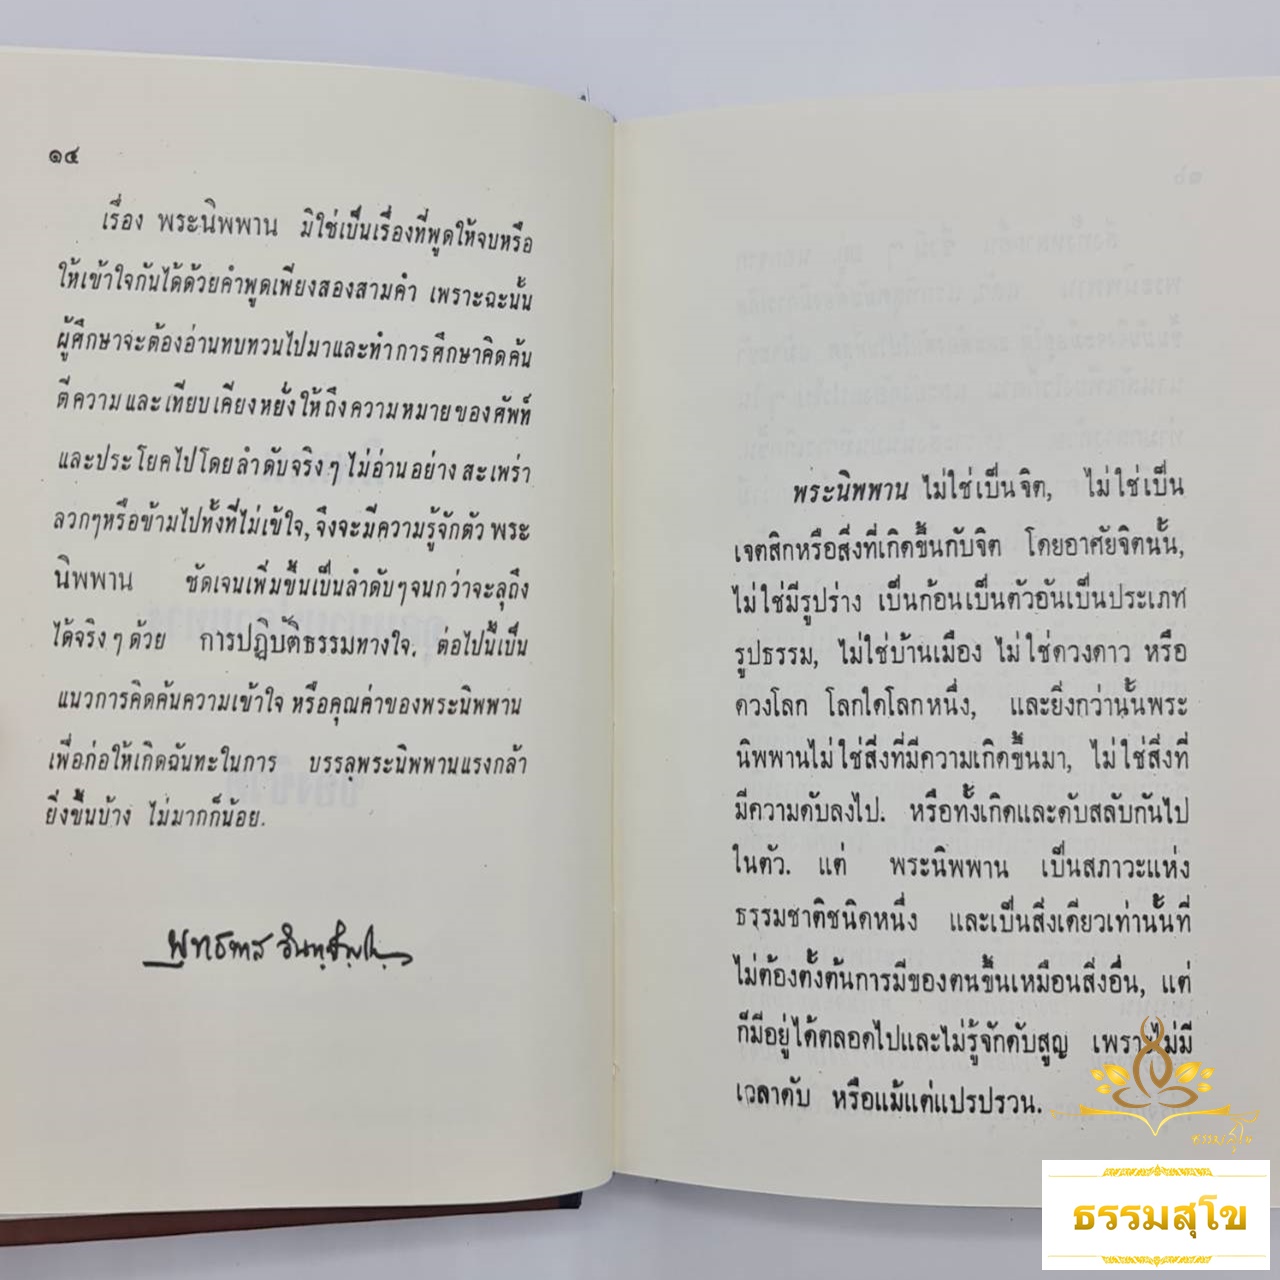 ๑๔
เรื่อง พระนิพพาน มิใช่เป็นเรื่องที่พูดให้จบหรือ
ให้เข้าใจกันได้ด้วยคำพูดเพียงสองสามคำ เพราะฉะนั้น
ผู้ศึกษาจะต้องอ่านทบทวนไปมาและทำการศึกษาคิดค้น
ตีความและเทียบเคียงหยั่งให้ถึงความหมายของศัพท์
และประโยคไปโดยลำดับจริงๆ ไม่อ่านอย่างสะเพร่า
ลวกๆหรือข้ามไปทั้งที่ไม่เข้าใจ, จึงจะมีความรู้จักตัว พระ
นิพพาน ชัดเจนเพิ่มขึ้นเป็นลำดับๆจนกว่าจะลุถึง
ได้จริงๆ ด้วย การปฏิบัติธรรมทางใจ. ต่อไปนี้เป็น
แนวการคิดค้นความเข้าใจ หรือคุณค่าของพระนิพพาน
เพื่อก่อให้เกิดฉันทะในการ บรรลุพระนิพพานแรงกล้า
ยิ่งขึ้นบ้าง ไม่มากก็น้อย.
พุทธทาส อินทปัญโญ
พระนิพพาน ไม่ใช่เป็นจิต, ไม่ใช่เป็น
เจตสิกหรือสิ่งที่เกิดขึ้นกับจิต โดยอาศัยจิตนั้น,
ไม่ใช่มีรูปร่าง เป็นก้อนเป็นตัวอันเป็นประเภท
รูปธรรม, ไม่ใช่บ้านเมือง ไม่ใช่ดวงดาว หรือ
ดวงโลก โลกใดโลกหนึ่ง, และยิ่งกว่านั้นพระ
นิพพานไม่ใช่สิ่งที่มีความเกิดขึ้นมา, ไม่ใช่สิ่งที่
มีความดับลงไป. หรือทั้งเกิดและดับสลับกันไป
ในตัว. แต่ พระนิพพาน เป็นสภาวะแห่ง
ธรรมชาติชนิดหนึ่ง และเป็นสิ่งเดียวเท่านั้นที่
ไม่ต้องตั้งต้นการมีของตนขึ้นเหมือนสิ่งอื่น, แต่
ก็มีอยู่ได้ตลอดไปและไม่รู้จักดับสูญ เพราะไม่มี
เวลาดับ หรือแม้แต่แปรปรวน.
ธรรมสุโข
ธรรมสุโข